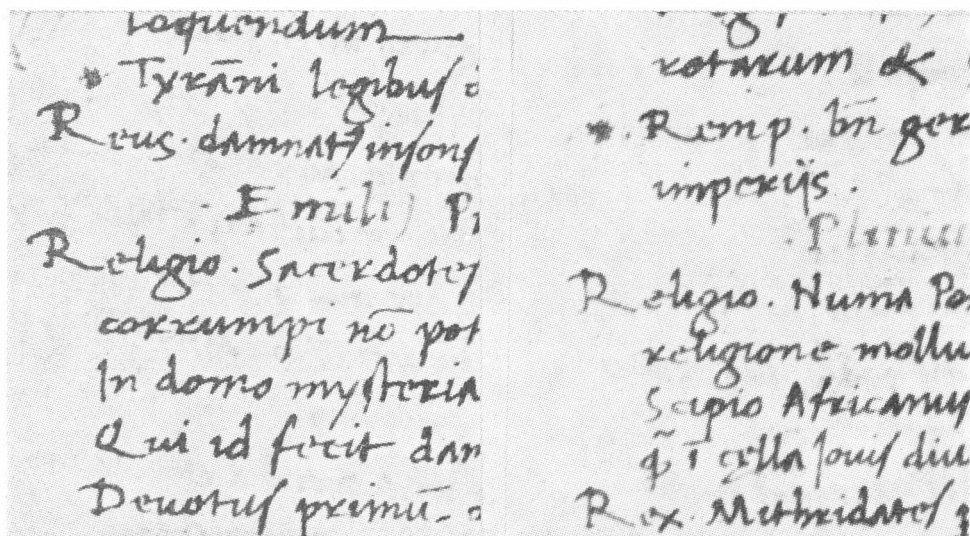 loquendum
* Tyrāni legibus
Reus. damnat, insons
Emilij
Religio. Sacerdotes
corrumpi nō pot
In domo mysteria
Qui id fecit dam
Devotus primū
rotarum &
*. Remp. bn̄ ger
imperijs.
. Plinius
Religio. Numa Po
religione mollu
Scipio Africanus
q̃ ī cęlla Jovis diu
Rex. Mithridates